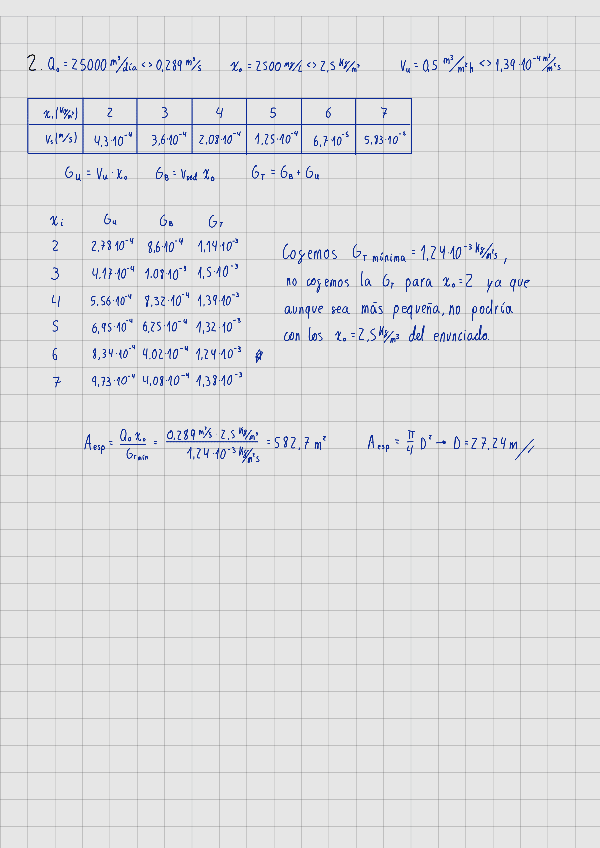 2. Q₀ = 25000 m³/día <-> 0,289 m³/s x₀ = 2500 mg/L <-> 2,5 kg/m³ Vᵤ = 0,5 m³/m²h <-> 1,39·10⁻⁴ m³/m²s
xᵢ (kg/m³) 2 3 4 5 6 7
Vₛ (m/s) 4,3·10⁻⁴ 3,6·10⁻⁴ 2,08·10⁻⁴ 1,25·10⁻⁴ 6,7·10⁻⁵ 5,83·10⁻⁵
Gᵤ = Vᵤ · x₀ G_B = V_sed x₀ G_T = G_B + Gᵤ
xᵢ Gᵤ G_B G_T
2 2,78·10⁻⁴ 8,6·10⁻⁴ 1,14·10⁻³
3 4,17·10⁻⁴ 1.08·10⁻³ 1,5·10⁻³
4 5.56·10⁻⁴ 8,32·10⁻⁴ 1,39·10⁻³
5 6,95·10⁻⁴ 6,25·10⁻⁴ 1,32·10⁻³
6 8,34·10⁻⁴ 4.02·10⁻⁴ 1,24·10⁻³
7 9,73·10⁻⁴ 4,08·10⁻⁴ 1,38·10⁻³
Cogemos G_T mínima = 1,24·10⁻³ kg/m²s,
no cogemos la G_T para x₀=2 ya que
aunque sea más pequeña, no podría
con los x₀ = 2,5 kg/m³ del enunciado.
A_esp = Q₀ x₀ / G_T mín = 0,289 m³/s 2,5 kg/m³ / 1,24·10⁻³ kg/m²s = 582,7 m² A_esp = π/4 D² → D = 27,24 m //